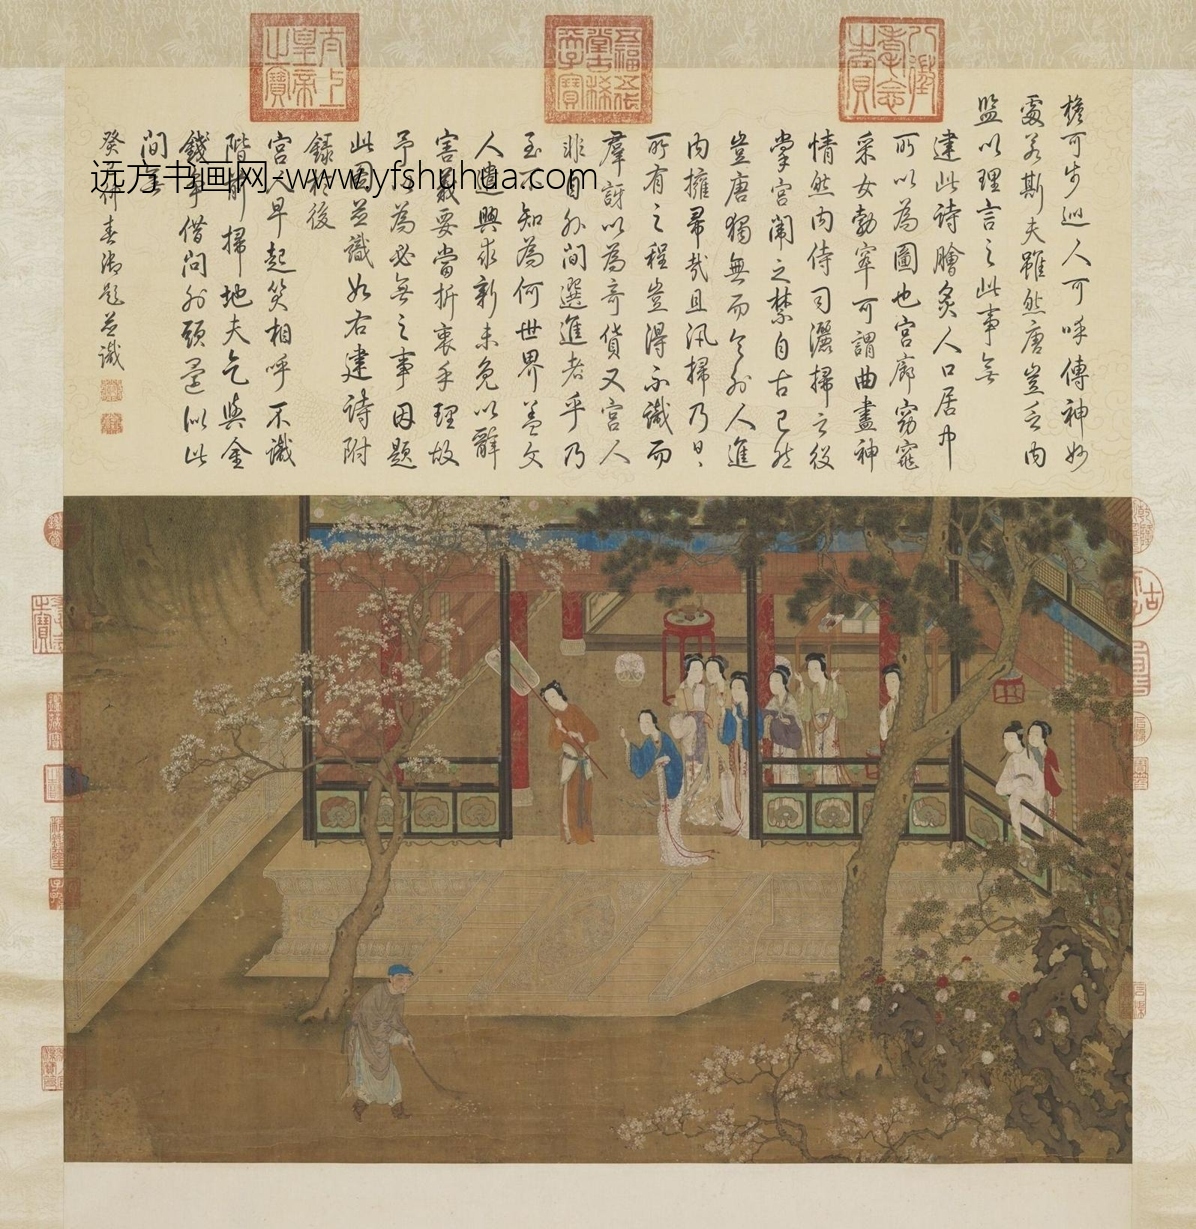 八徵耄念之寶
五福五代堂古稀天子寶
太上皇帝之寶
檐可步巡人可呼傳神妙
處若斯夫雖然唐豈乏内
監以理言之此事無
建此詩膾炙人口居中
所以為圖也宮廊窈窕
采女勃窣可謂曲盡神
情然内侍司灑掃之役
掌宮闈之禁自古已然
豈唐獨無而令外人進
内擁帚哉且汛掃乃日日
所有之程豈得不識而
羣訝以為奇貨又宮人
非自外間選進者乎乃
至不知為何世界蓋文
人遣興求新未免以辭
害義要當折衷乎理故
予以為必無之事因題
此圖並識如右建詩附
錄於後
宮人早起笑相呼不識
階前掃地夫乞與金
錢爭借問外頭還似此
間無
癸卯春御題並識
远方书画网-www.yfshuhua.com